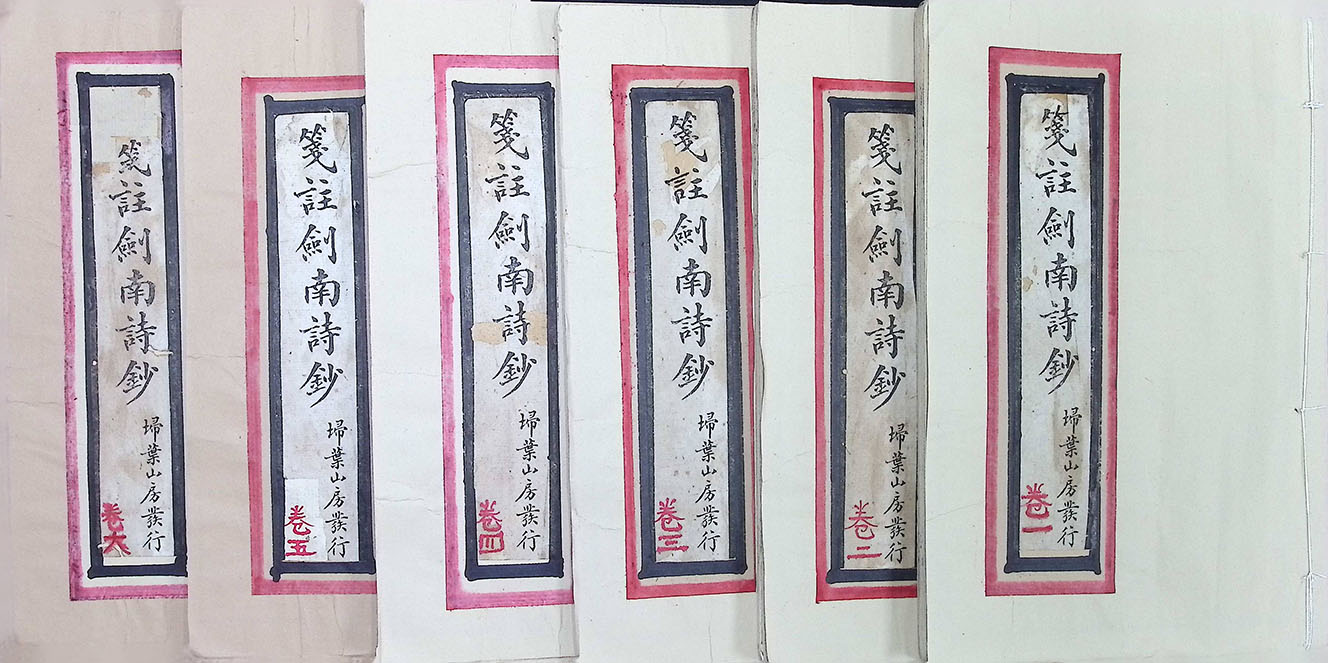 箋註劍南詩鈔
埽葉山房發行
卷一
箋註劍南詩鈔
埽葉山房發行
卷二
箋註劍南詩鈔
埽葉山房發行
卷三
箋註劍南詩鈔
埽葉山房發行
卷四
箋註劍南詩鈔
埽葉山房發行
卷五
箋註劍南詩鈔
埽葉山房發行
卷六